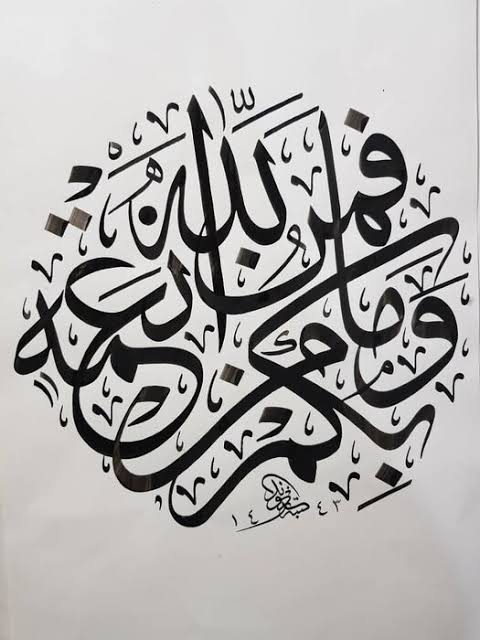 وَمَا بِكُمْ مِنْ نِعْمَةٍ فَمِنَ اللهِ
كتبه
١٤٤٣